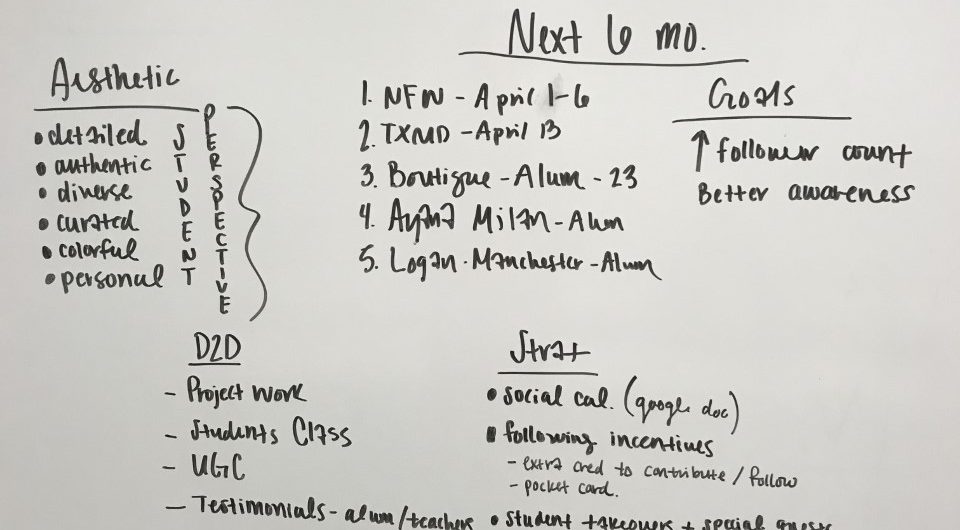 Next 6 mo.
Aesthetic
• detailed
• authentic
• diverse
• curated
• colorful
• personal
STUDENT
PERSPECTIVE
1. NFW - April 1-6
2. TXMD - April 13
3. Boutique - Alum - 23
4. Ayana Milan - Alum
5. Logan - Manchester - Alum
Goals
↑ follower count
Better awareness
D2D
- Project work
- Students Class
- UGC
- Testimonials - alum/teachers
Strat
• social cal. (google doc)
• following incentives
- extra cred to contribute / follow
- pocket card.
• student takeovers + special guests